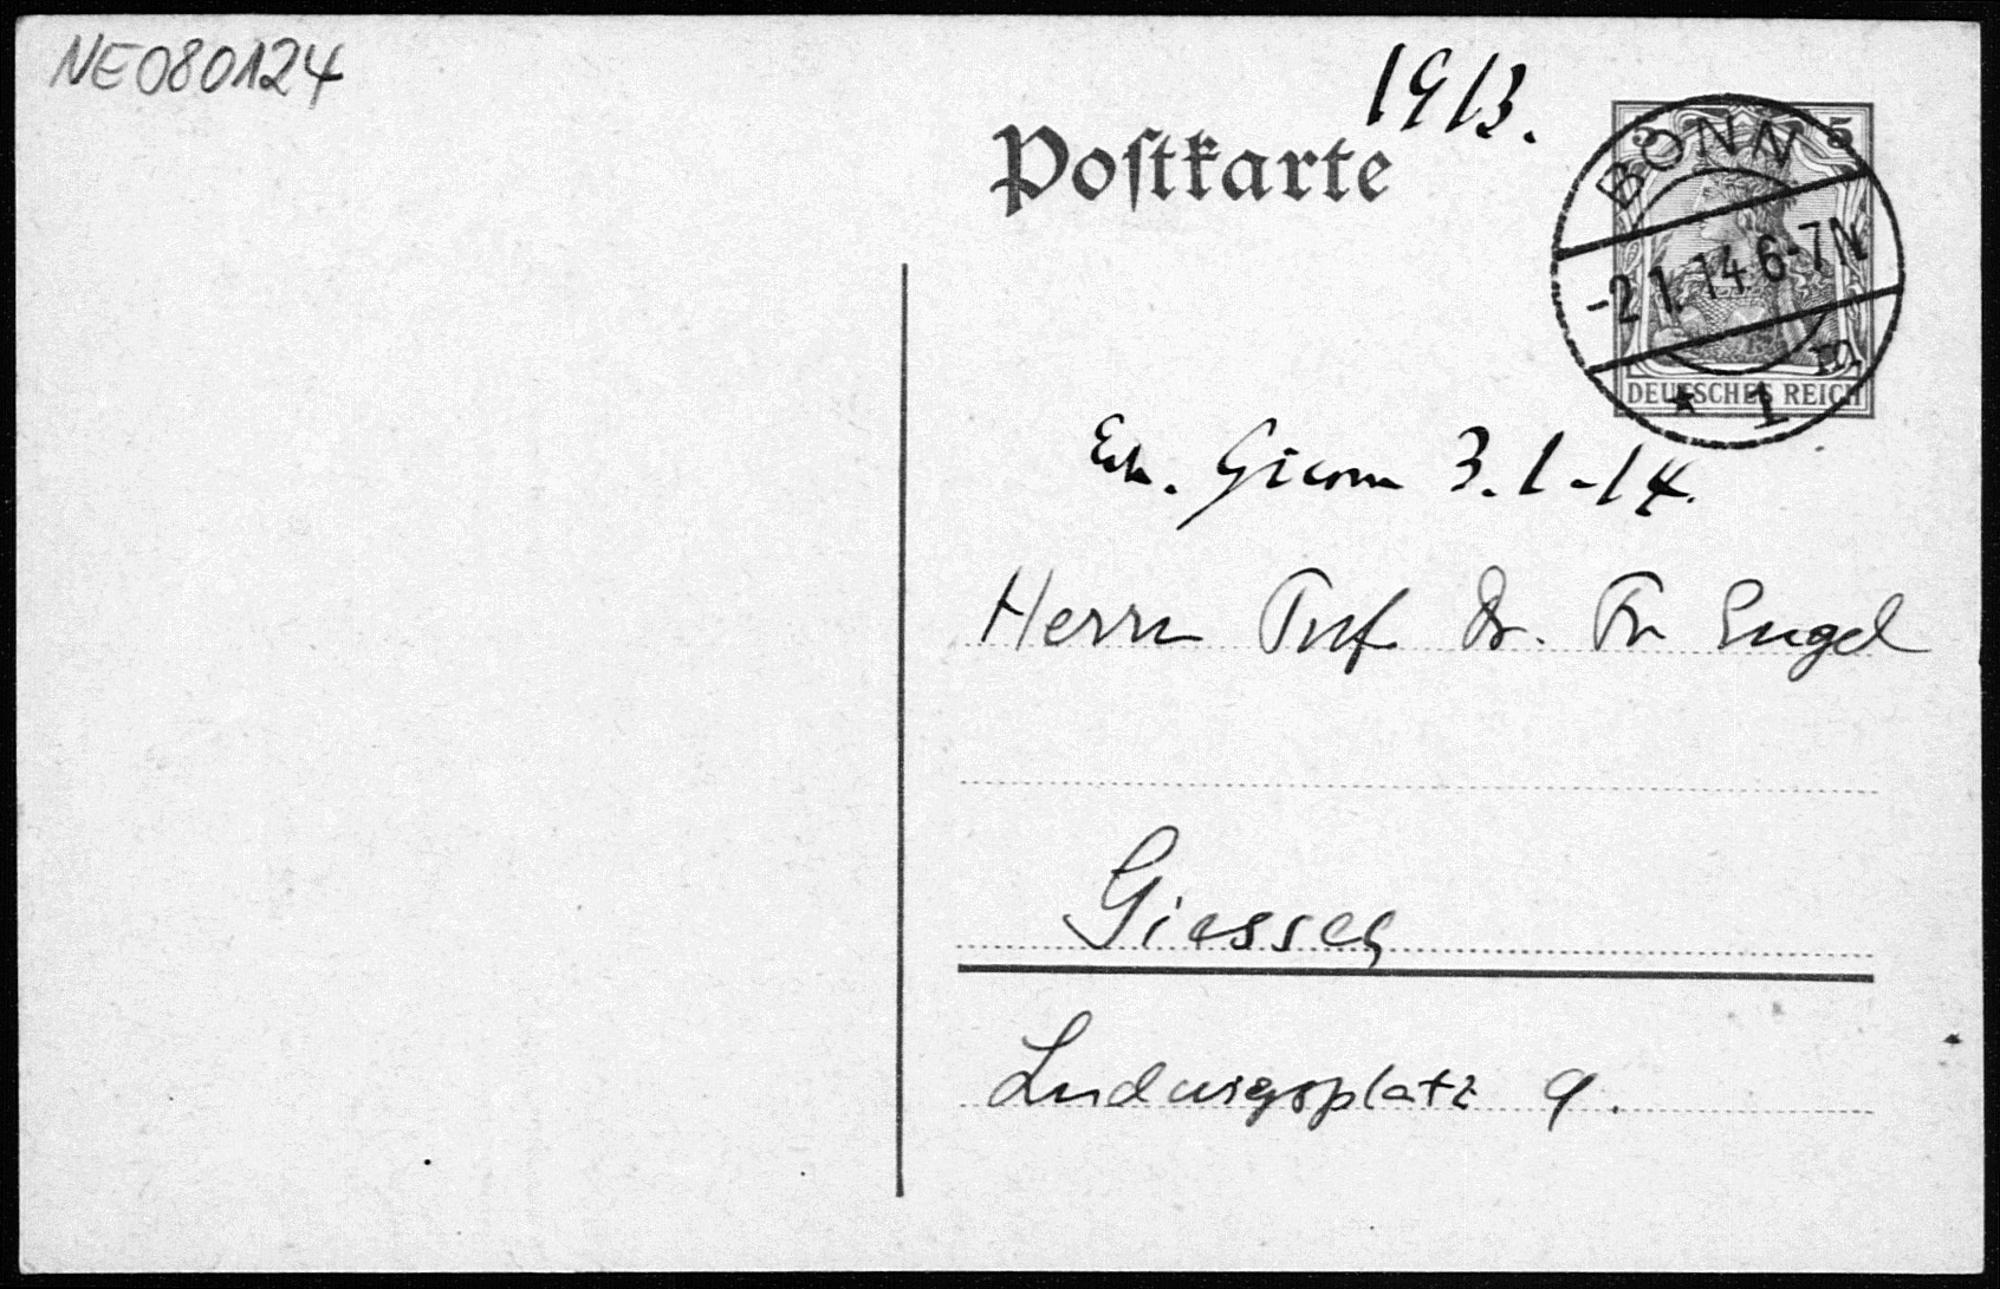 NE080124
1913.
Postkarte
5 5
BONN
-2.1.14.6-7N
* 1 m
DEUTSCHES REICH
3.1-14.
Herrn Prof. Dr. Fr Engel
Giessen
Ludwigsplatz 9.